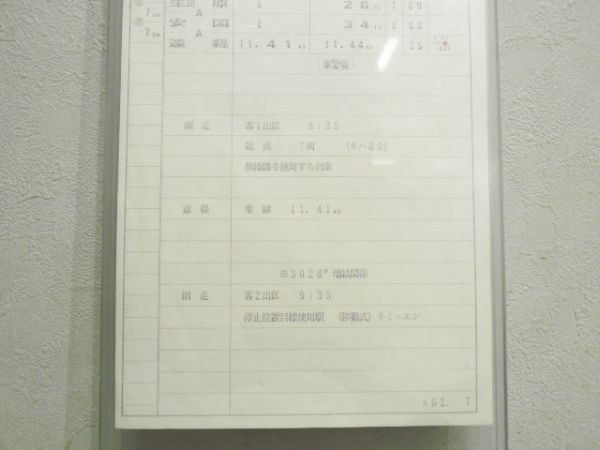 生田原 ↓ 26 15 1 80
7 A
安国 ↓ 34 15 2 80
7 A
遠軽 11.41 45 11.44 45 35
車警切
網走 客1出区 9:35
組成 7両 (キハ80)
無線機を使用する列車
遠軽 乗継 11.41 45
※3028D 増結関係
網走 客2出区 9:35
停止位置目標使用駅 (移動式) キミ・エン
62. 7